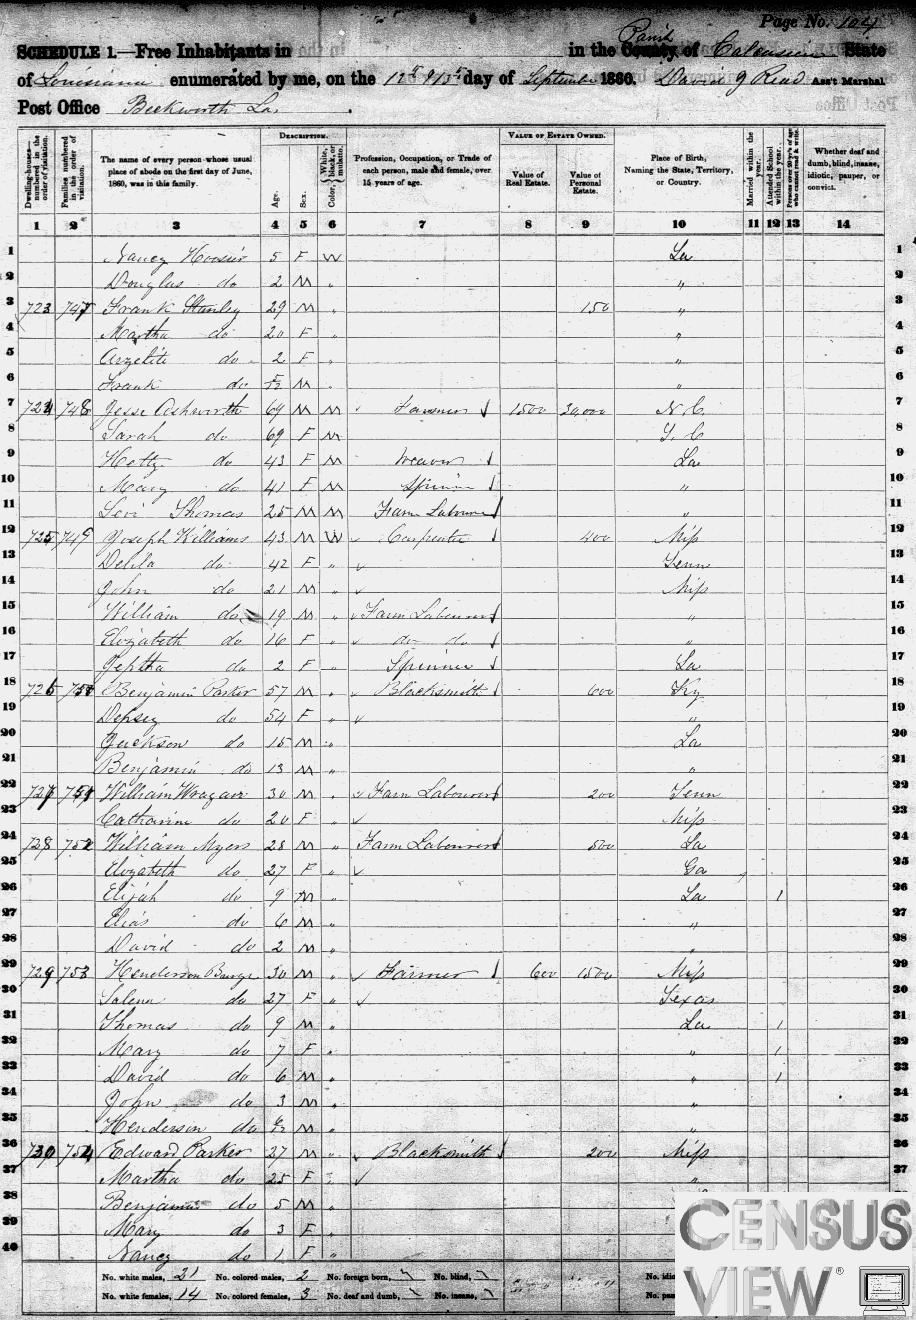 Page No. 104
SCHEDULE 1.—Free Inhabitants in in the County of Parish Calcasieu State
of Louisiana enumerated by me, on the 12th & 13th day of September 1860. David J Read Ass't Marshal
Post Office Beckworth La.
Dwelling-houses—numbered in the order of visitation. Families numbered in the order of visitation. The name of every person whose usual place of abode on the first day of June, 1860, was in this family. DESCRIPTION. Age. Sex. Color, White, black, or mulatto. Profession, Occupation, or Trade of each person, male and female, over 15 years of age. VALUE OF ESTATE OWNED. Value of Real Estate. Value of Personal Estate. Place of Birth, Naming the State, Territory, or Country. Married within the year. Attended School within the year. Persons over 20 y'rs of age who cannot read & write. Whether deaf and dumb, blind, insane, idiotic, pauper, or convict.
1 2 3 4 5 6 7 8 9 10 11 12 13 14
1 Nancy Hoosier 5 F W La 1
2 Douglas do 2 M " " 2
3 723 747 Frank Stanley 29 M " 150 " 3
4 Martha do 20 F " " 4
5 Arzelite do 2 F " " 5
6 Frank do M " " 6
7 724 748 Jesse Ashworth 69 M M Farmer 1500 30,000 N C. 7
8 Sarah do 69 F M S. C 8
9 Hetty do 43 F M Weaver La 9
10 Mary do 41 F M Spinner " 10
11 Levi Thomas 25 M M Farm Labourer " 11
12 725 749 Joseph Williams 43 M W Carpenter 400 Miss 12
13 Delila do 42 F " Tenn 13
14 John do 21 M " Miss 14
15 William do 19 M " Farm Labourer " 15
16 Elizabeth do 16 F " do do " 16
17 Jeptha do 2 F " Spinner La 17
18 726 750 Benjamin Parker 57 M " Blacksmith 600 Ky 18
19 Depsey do 54 F " " 19
20 Jackson do 15 M " La 20
21 Benjamin do 13 M " " 21
22 727 751 William 30 M " Farm Labourer 200 Tenn 22
23 Catharine do 20 F " Miss 23
24 728 752 William Myers 28 M " Farm Labourer 500 La 24
25 Elizabeth do 27 F " Ga 25
26 Elijah do 9 M " La 1 26
27 Elias do 6 M " " 27
28 David do 2 M " " 28
29 729 753 Henderson Burge 30 M " Farmer 600 1500 Miss 29
30 Salena do 27 F " Texas 30
31 Thomas do 9 M " La 1 31
32 Mary do 7 F " " 1 32
33 David do 6 M " " 1 33
34 John do 3 M " " 34
35 Henderson do M " " 35
36 730 754 Edward Parker 27 M " Blacksmith 200 Miss 36
37 Martha do 25 F " " 37
38 Benjamin do 5 M " 38
39 Mary do 3 F "
40 Nancy do 1 F "
No. white males, 21 No. colored males, 2 No. foreign born, No. blind,
No. white females, 14 No. colored females, 3 No. deaf and dumb, No. insane,
CENSUS
VIEW®